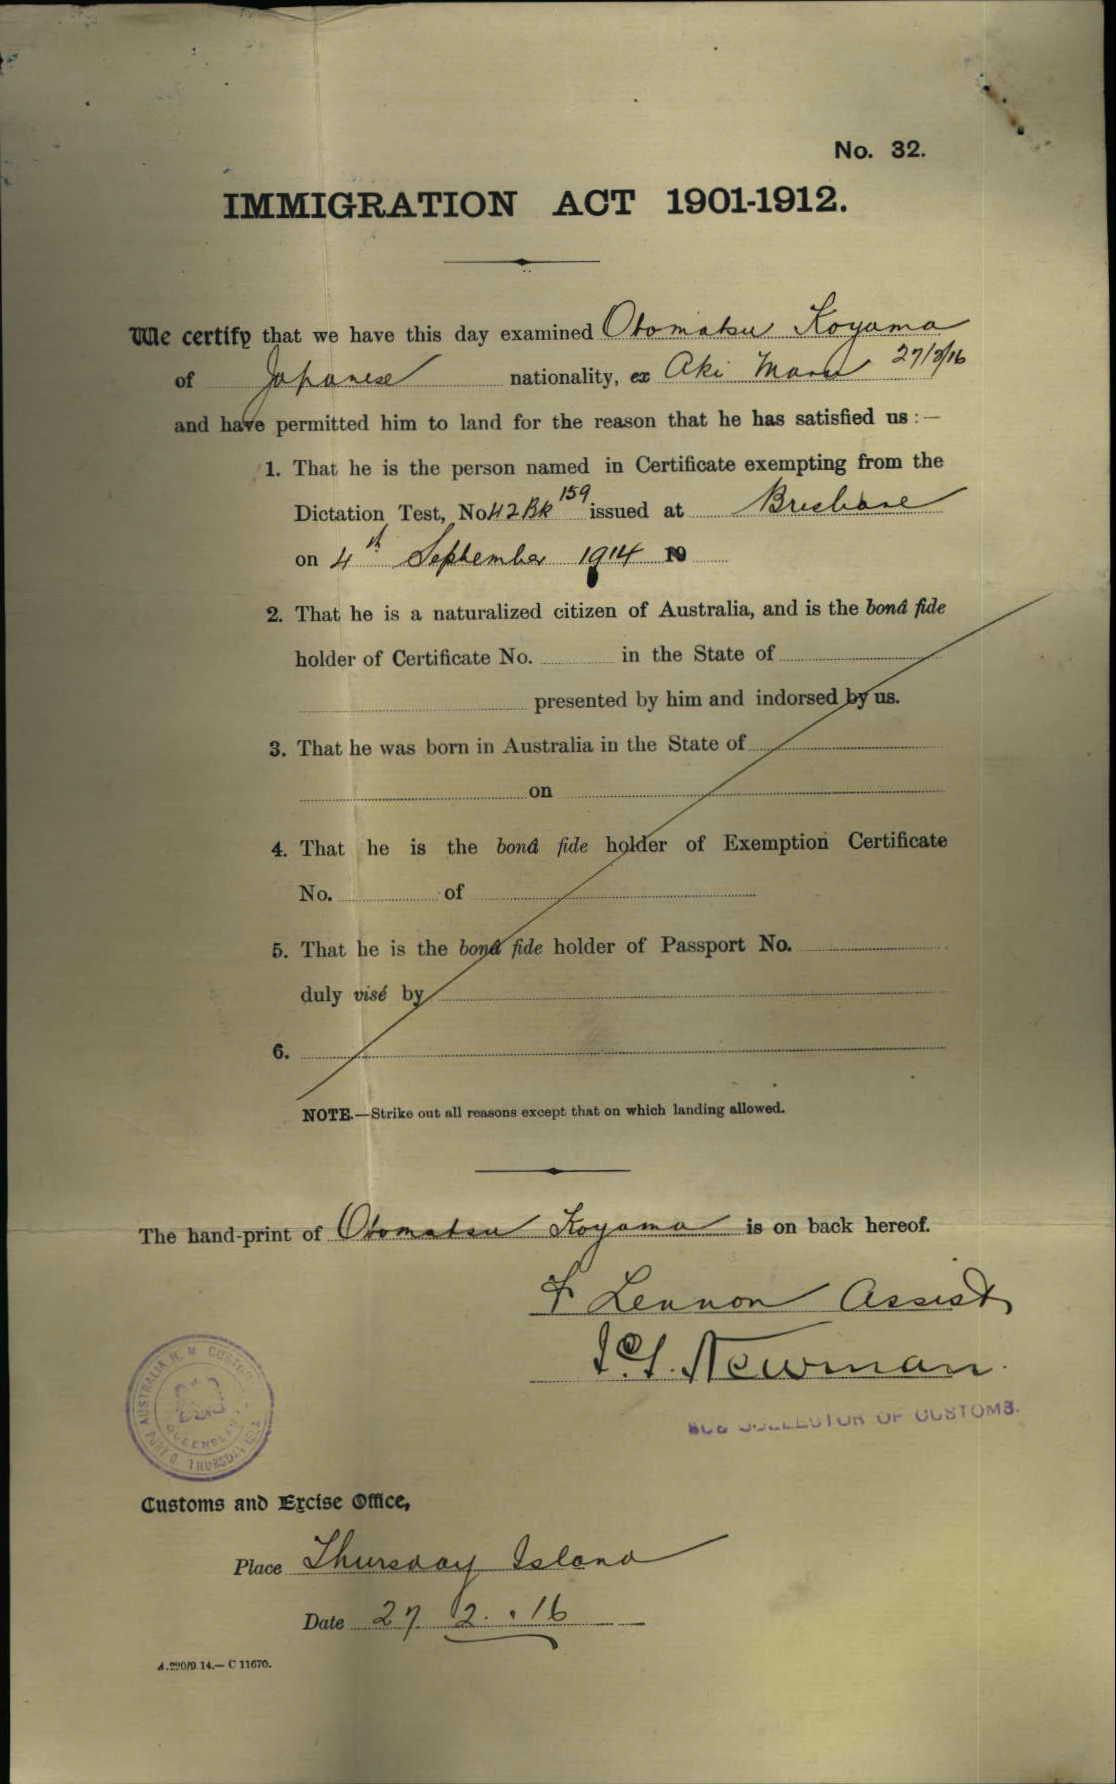 No. 32.
IMMIGRATION ACT 1901-1912.
We certify that we have this day examined Otomatsu Koyama
of Japanese nationality, ex Aki Maru 27/2/16
and have permitted him to land for the reason that he has satisfied us :—
1. That he is the person named in Certificate exempting from the
Dictation Test, No 42 Bk 159 issued at Brisbane
on 4th September 1914 19
2. That he is a naturalized citizen of Australia, and is the bonâ fide
holder of Certificate No. in the State of
presented by him and indorsed by us.
3. That he was born in Australia in the State of
on
4. That he is the bonâ fide holder of Exemption Certificate
No. of
5. That he is the bonâ fide holder of Passport No.
duly visé by
6.
NOTE.—Strike out all reasons except that on which landing allowed.
The hand-print of Otomatsu Koyama is on back hereof.
F Lennon Assist
Newman
SUB COLLECTOR OF CUSTOMS.
AUSTRALIA H. M. CUSTOMS
QUEENSLAND
THURSDAY ISLD
Customs and Excise Office,
Place Thursday Island
Date 27. 2. 16
A.290/9.14.—C 11670.